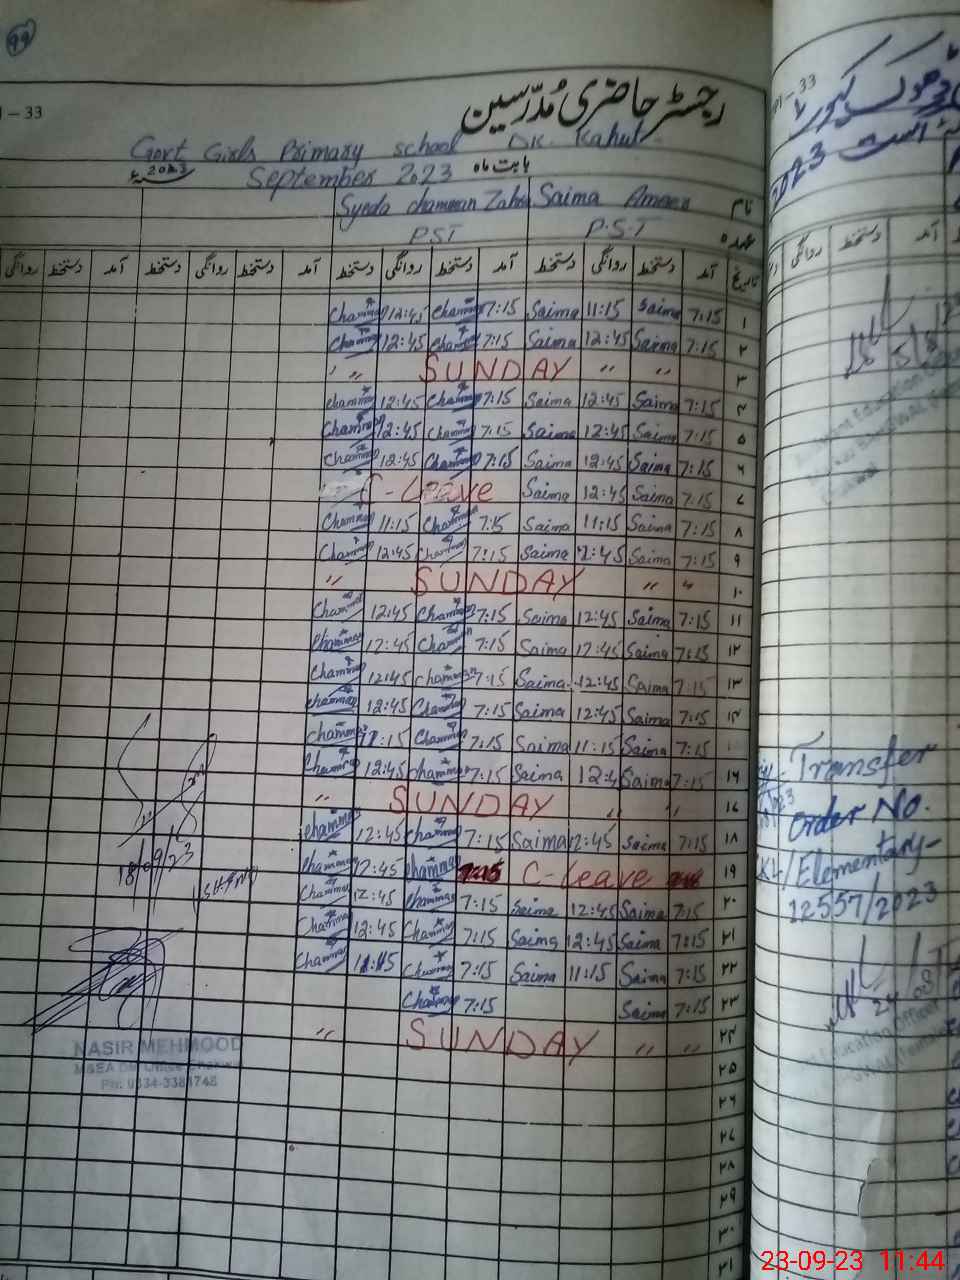 99
- 33
رجسٹر حاضری مُدرّسین
Govt Girls Primary school DK. Kahut
بابت ماہ September 2023 2023
نام Saima Ameer Syeda Chamman Zahra
عہدہ P.S.T P.S.T
تاریخ آمد دستخط روانگی دستخط آمد دستخط روانگی دستخط آمد دستخط روانگی دستخط آمد دستخط روانگی
۱ 7:15 Saima 11:15 Saima 7:15 Chamman 12:45 Chamman
۲ 7:15 Saima 12:45 Saima 7:15 Chamman 12:45 Chamman
۳ " " SUNDAY "
۴ 7:15 Saima 12:45 Saima 7:15 Chamman 12:45 Chamman
۵ 7:15 Saima 12:45 Saima 7:15 Chamman 12:45 Chamman
۶ 7:15 Saima 12:45 Saima 7:15 Chamman 12:45 Chamman
۷ 7:15 Saima 12:45 Saima C-Leave
۸ 7:15 Saima 11:15 Saima 7:15 Chamman 11:15 Chamman
۹ 7:15 Saima 12:45 Saima 7:15 Chamman 12:45 Chamman
۱۰ " " SUNDAY "
۱۱ 7:15 Saima 12:45 Saima 7:15 Chamman 12:45 Chamman
۱۲ 7:15 Saima 12:45 Saima 7:15 Chamman 12:45 Chamman
۱۳ 7:15 Saima 12:45 Saima 7:15 Chamman 12:45 Chamman
۱۴ 7:15 Saima 12:45 Saima 7:15 Chamman 12:45 Chamman
7:15 Saima 11:15 Saima 7:15 Chamman 11:15 Chamman
۱۶ 7:15 Saima 12:4 Saima 7:15 Chamman 12:45 Chamman
۱۷ " " SUNDAY "
۱۸ 7:15 Saima 12:45 Saima 7:15 Chamman 12:45 Chamman
۱۹ C-Leave 7:15 Chamman 12:45 Chamman
۲۰ 7:15 Saima 12:45 Saima 7:15 Chamman 12:45 Chamman
۲۱ 7:15 Saima 12:45 Saima 7:15 Chamman 12:45 Chamman
۲۲ 7:15 Saima 11:15 Saima 7:15 Chamman 11:15 Chamman
۲۳ 7:15 Saima 7:15 Chamman
۲۴ " " SUNDAY "
۲۵
۲۶
۲۷
۲۸
۲۹
۳۰
۳۱
18/09/23
NASIR MEHMOOD
M&EA
- 33
2023
آمد دستخط روانگی
Transfer
Order No.
/Elementary-
12557/2023
Education Officer
23-09-23 11:44